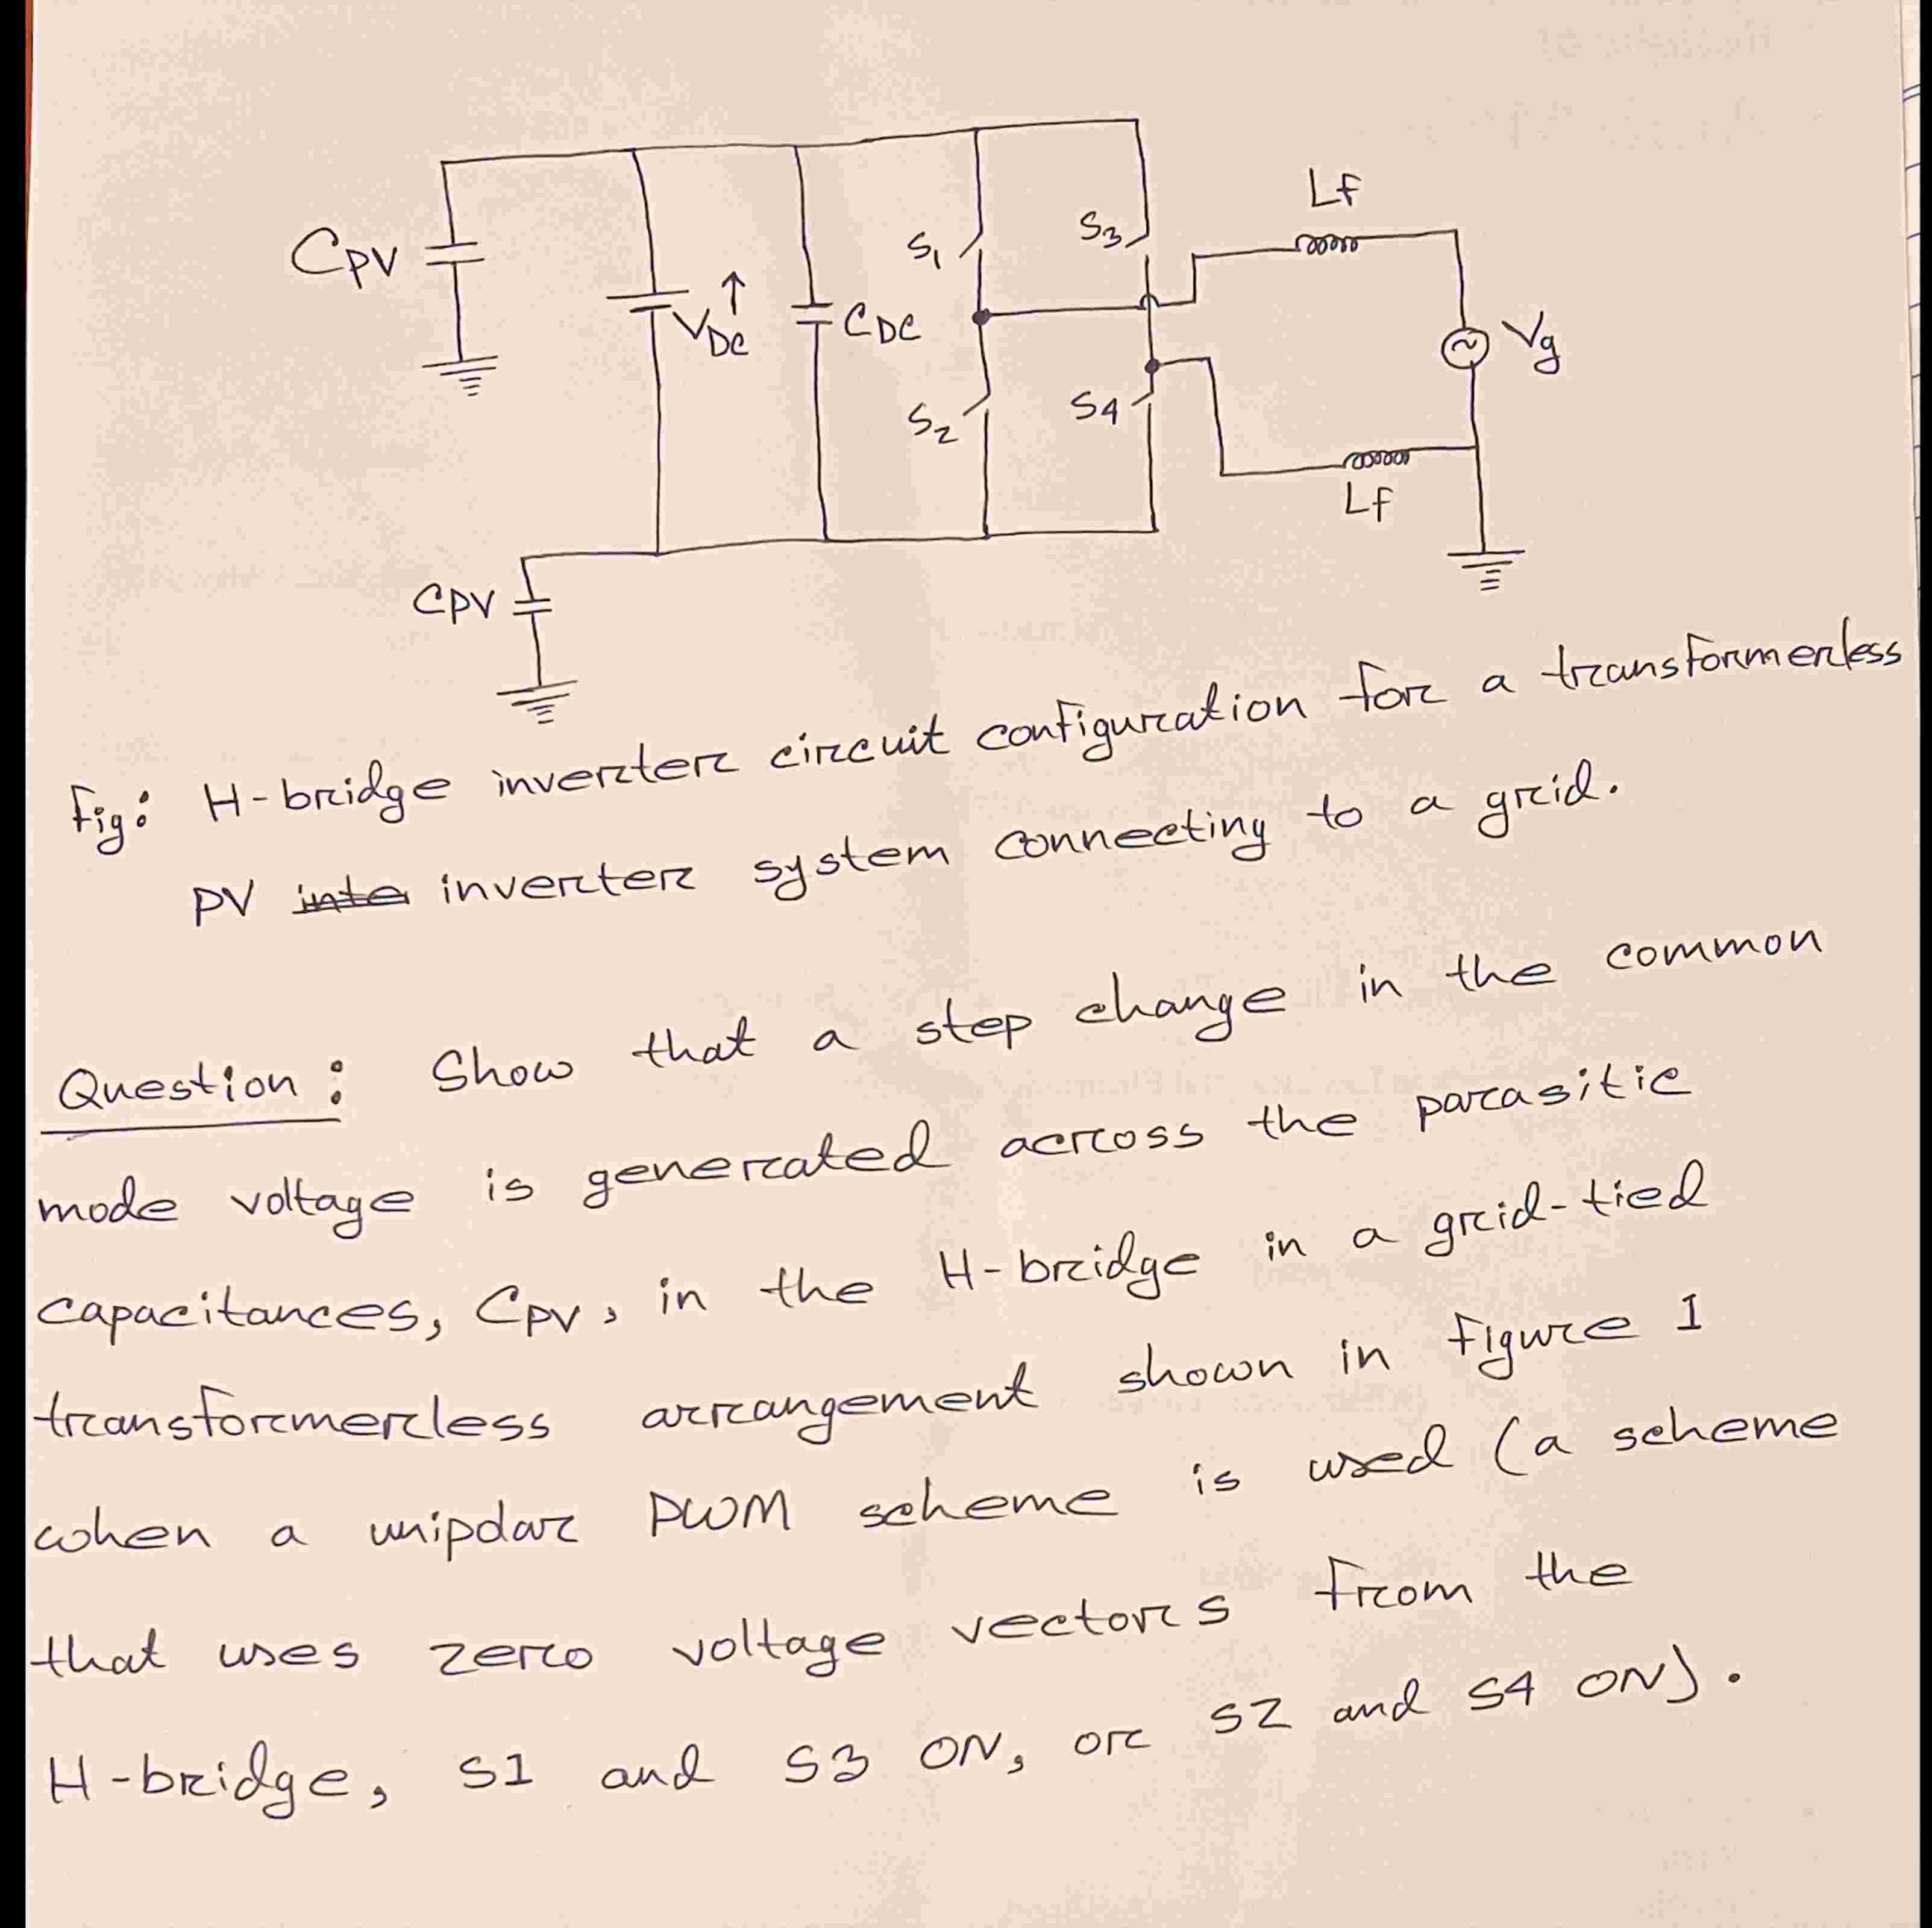 Lf
CPV
S1
S3
VDC
CDC
Vg
S2
S4
Lf
CPV
Fig: H-bridge inverter circuit configuration for a transformerless
PV inte inverter system connecting to a grid.
Question: Show that a step change in the common
mode voltage is generated across the parasitic
capacitances, CPV, in the H-bridge in a grid-tied
transformerless arrangement shown in Figure 1
when a unipolar PWM scheme is used (a scheme
that uses zero voltage vectors from the
H-bridge, S1 and S3 ON, or S2 and S4 ON).